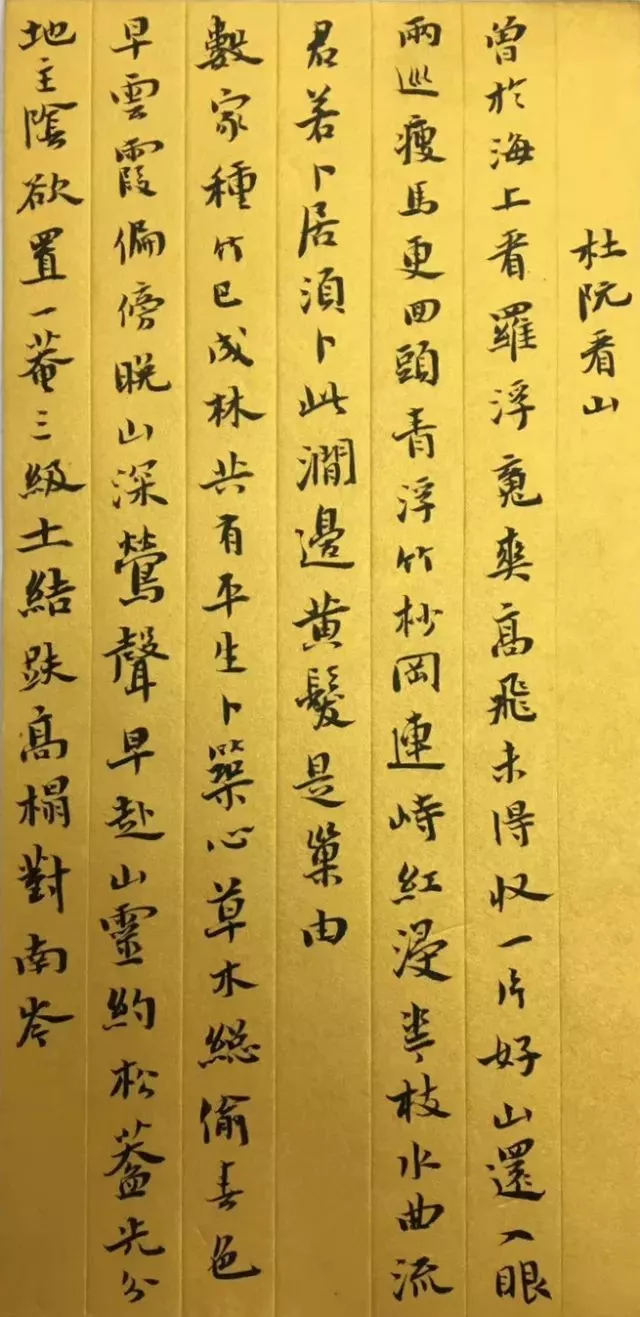 杜阮看山
曾於海上看羅浮魂爽高飛未得收一片好山還入眼
兩巡瘦馬更囬頭青浮竹杪岡連峙紅浸華枝水曲流
君若卜居須卜此澗邊黃髮是巢由
數家種竹已成林共有平生卜築心草木総偷春色
早雲霞偏傍晚山深鶯聲早赴山靈約松蓋先分
地主陰欲置一菴三級土結趺高榻對南岑